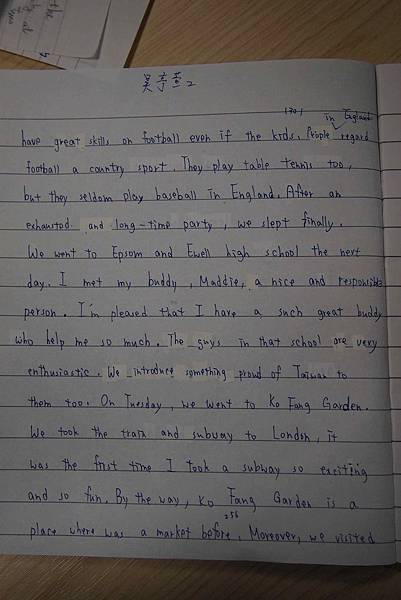 the
吳亭萱 2
1301
in England
have great skills on football even if the kids. People regard
football a country sport. They play table tennis too,
but they seldom play baseball in England. After an
exhausted and long-time party, we slept finally.
We went to Epsom and Ewell high school the next
day. I met my buddy, Maddie, a nice and responsible
person. I'm pleased that I have a such great buddy
who help me so much. The guys in that school are very
enthusiastic. We introduce something proud of Taiwan to
them too. On Tuesday, we went to Ko Fang Garden.
We took the train and subway to London, it
was the first time I took a subway so exciting
and so fun. By the way, Ko Fang Garden is a
256
place where was a market before. Moreover, we visited